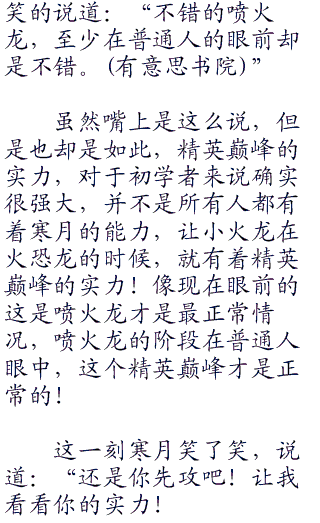 笑的说道：“不错的喷火
龙，至少在普通人的眼前却
是不错。(有意思书院)”
虽然嘴上是这么说，但
是也却是如此，精英巅峰的
实力，对于初学者来说确实
很强大，并不是所有人都有
着寒月的能力，让小火龙在
火恐龙的时候，就有着精英
巅峰的实力！像现在眼前的
这是喷火龙才是最正常情
况，喷火龙的阶段在普通人
眼中，这个精英巅峰才是正
常的！
这一刻寒月笑了笑，说
道：“还是你先攻吧！让我
看看你的实力！